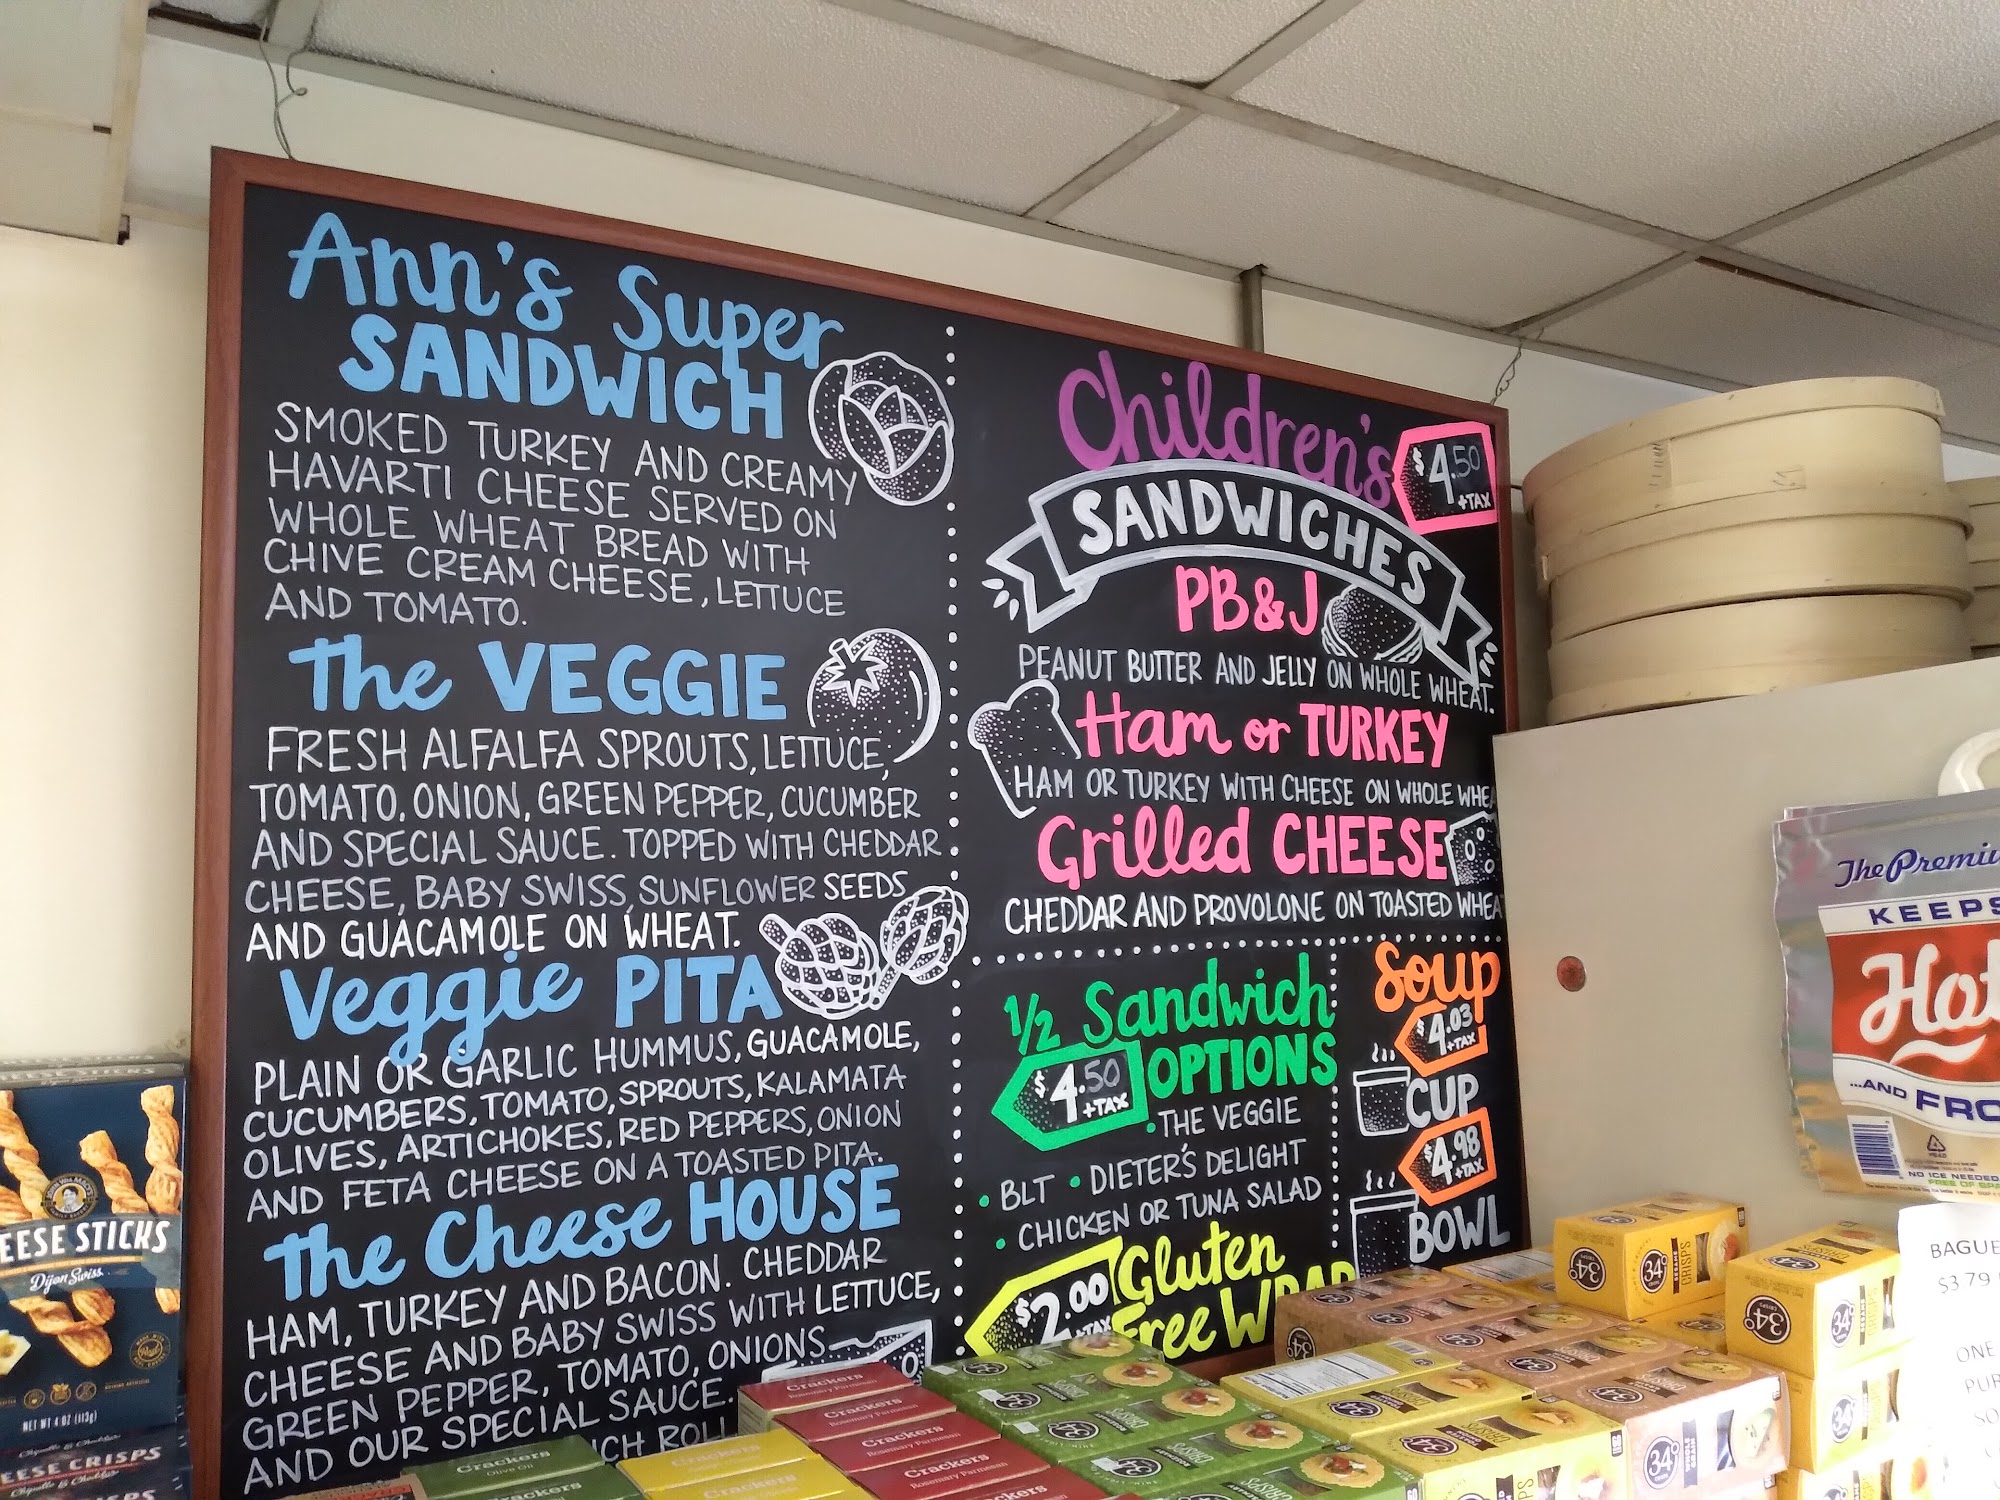 Ann's Super
SANDWICH
SMOKED TURKEY AND CREAMY
HAVARTI CHEESE SERVED ON
WHOLE WHEAT BREAD WITH
CHIVE CREAM CHEESE, LETTUCE
AND TOMATO.
The VEGGIE
FRESH ALFALFA SPROUTS, LETTUCE,
TOMATO, ONION, GREEN PEPPER, CUCUMBER
AND SPECIAL SAUCE. TOPPED WITH CHEDDAR
CHEESE, BABY SWISS, SUNFLOWER SEEDS
AND GUACAMOLE ON WHEAT.
Veggie PITA
PLAIN OR GARLIC HUMMUS, GUACAMOLE,
CUCUMBERS, TOMATO, SPROUTS, KALAMATA
OLIVES, ARTICHOKES, RED PEPPERS, ONION
AND FETA CHEESE ON A TOASTED PITA.
The Cheese HOUSE
HAM, TURKEY AND BACON. CHEDDAR
CHEESE AND BABY SWISS WITH LETTUCE,
GREEN PEPPER, TOMATO, ONIONS
AND OUR SPECIAL SAUCE.
ROLL
Children's
$4.50
+TAX
SANDWICHES
PB&J
PEANUT BUTTER AND JELLY ON WHOLE WHEAT.
Ham or TURKEY
HAM OR TURKEY WITH CHEESE ON WHOLE WHEA
Grilled CHEESE
CHEDDAR AND PROVOLONE ON TOASTED WHEA
1/2 Sandwich
OPTIONS
$4.50
+TAX
• THE VEGGIE
• BLT • DIETER'S DELIGHT
• CHICKEN OR TUNA SALAD
$2.00
+TAX
Gluten
Free WRAP
Soup
$4.03
+TAX
CUP
$4.98
+TAX
BOWL
The Premiu
KEEPS
Hot
...AND FRO
NO ICE NEEDED
BAGUE
$3.79
ONE
PUR
SO
EESE STICKS
Dijon Swiss
NET WT 4 OZ (113g)
Chipotle & Cheddar
EESE CRISPS
Chipotle & Cheddar
Crackers
Olive Oil
Crackers
Crackers
Rosemary Parmesan
Crackers
Rosemary Parmesan
Crackers
Rosemary Parmesan
Crackers
34°
CRISPS
34°
SESAME
CRISPS
34°
34°
34°
WHOLE
GRAIN